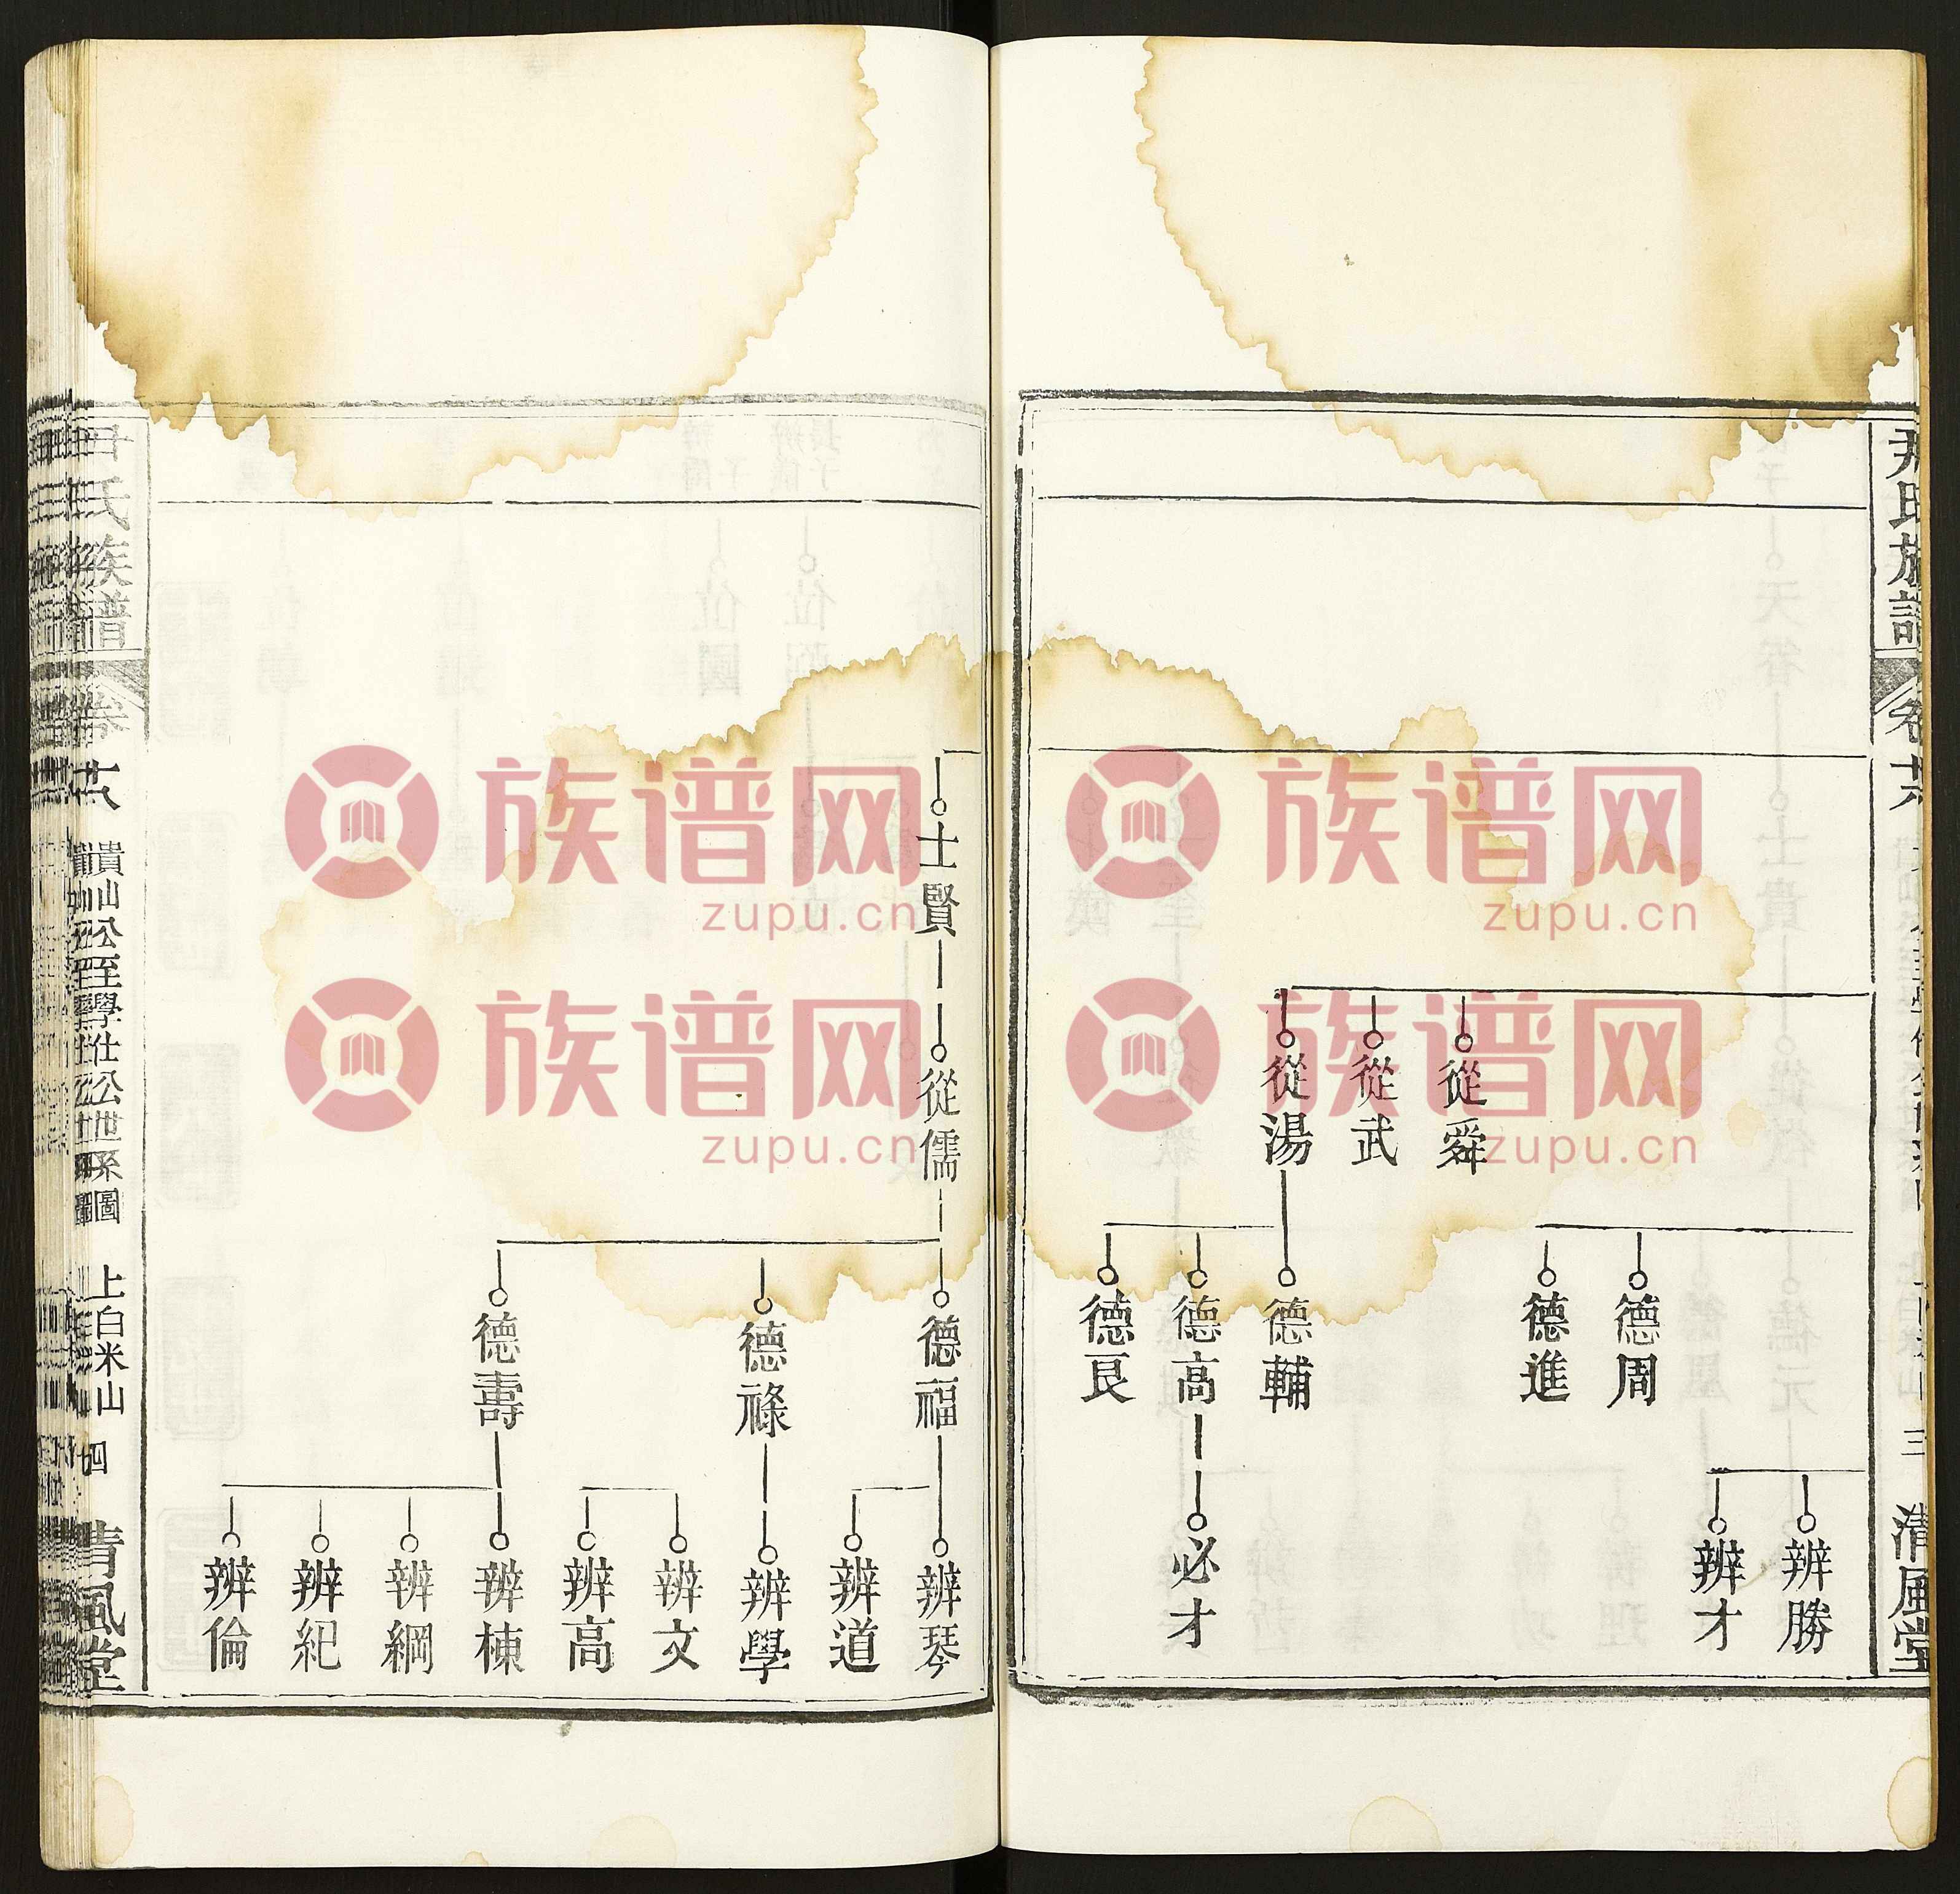 尹氏族譜
卷
十六
三
清風堂
辨勝
辨才
德周
德進
從舜
從武
從湯
德輔
德高
必才
德艮
士賢
從儒
德福
辨琴
辨道
德祿
辨學
辨文
辨高
德壽
辨棟
辨綱
辨紀
辨倫
氏族譜
卷
十六
貴山公至學仕公世系圖
上白米山
四
清風堂
族谱网
zupu.cn
族谱网
zupu.cn
族谱网
zupu.cn
族谱网
zupu.cn